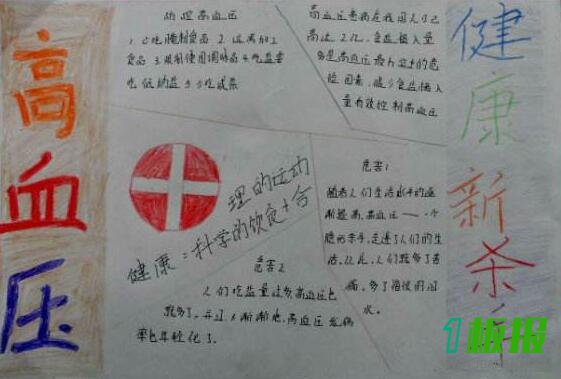 高血压
健康新杀手
防理高血压
1.少吃腌制食品 2.远离加工
食品 3.限制使用调味品 4.吃盐要
吃低钠盐 5.少吃咸菜
高血压患病在我国人口已
高达2亿,食盐摄入量
多是高血压最为重要的危
险因素,减少食盐摄入
量有效控制高血压
健康=科学的饮食+合
理的运动
危害1
随着人们生活水平的逐
渐提高,高血压——一个
隐形杀手,走进了人们的生
活,从此,人们就多了苦
痛,多了苦恨的泪
水。
危害2
人们吃盐量过多高血压也
就多了,并且渐渐地,高血压发病
率也年轻化了。
1板报